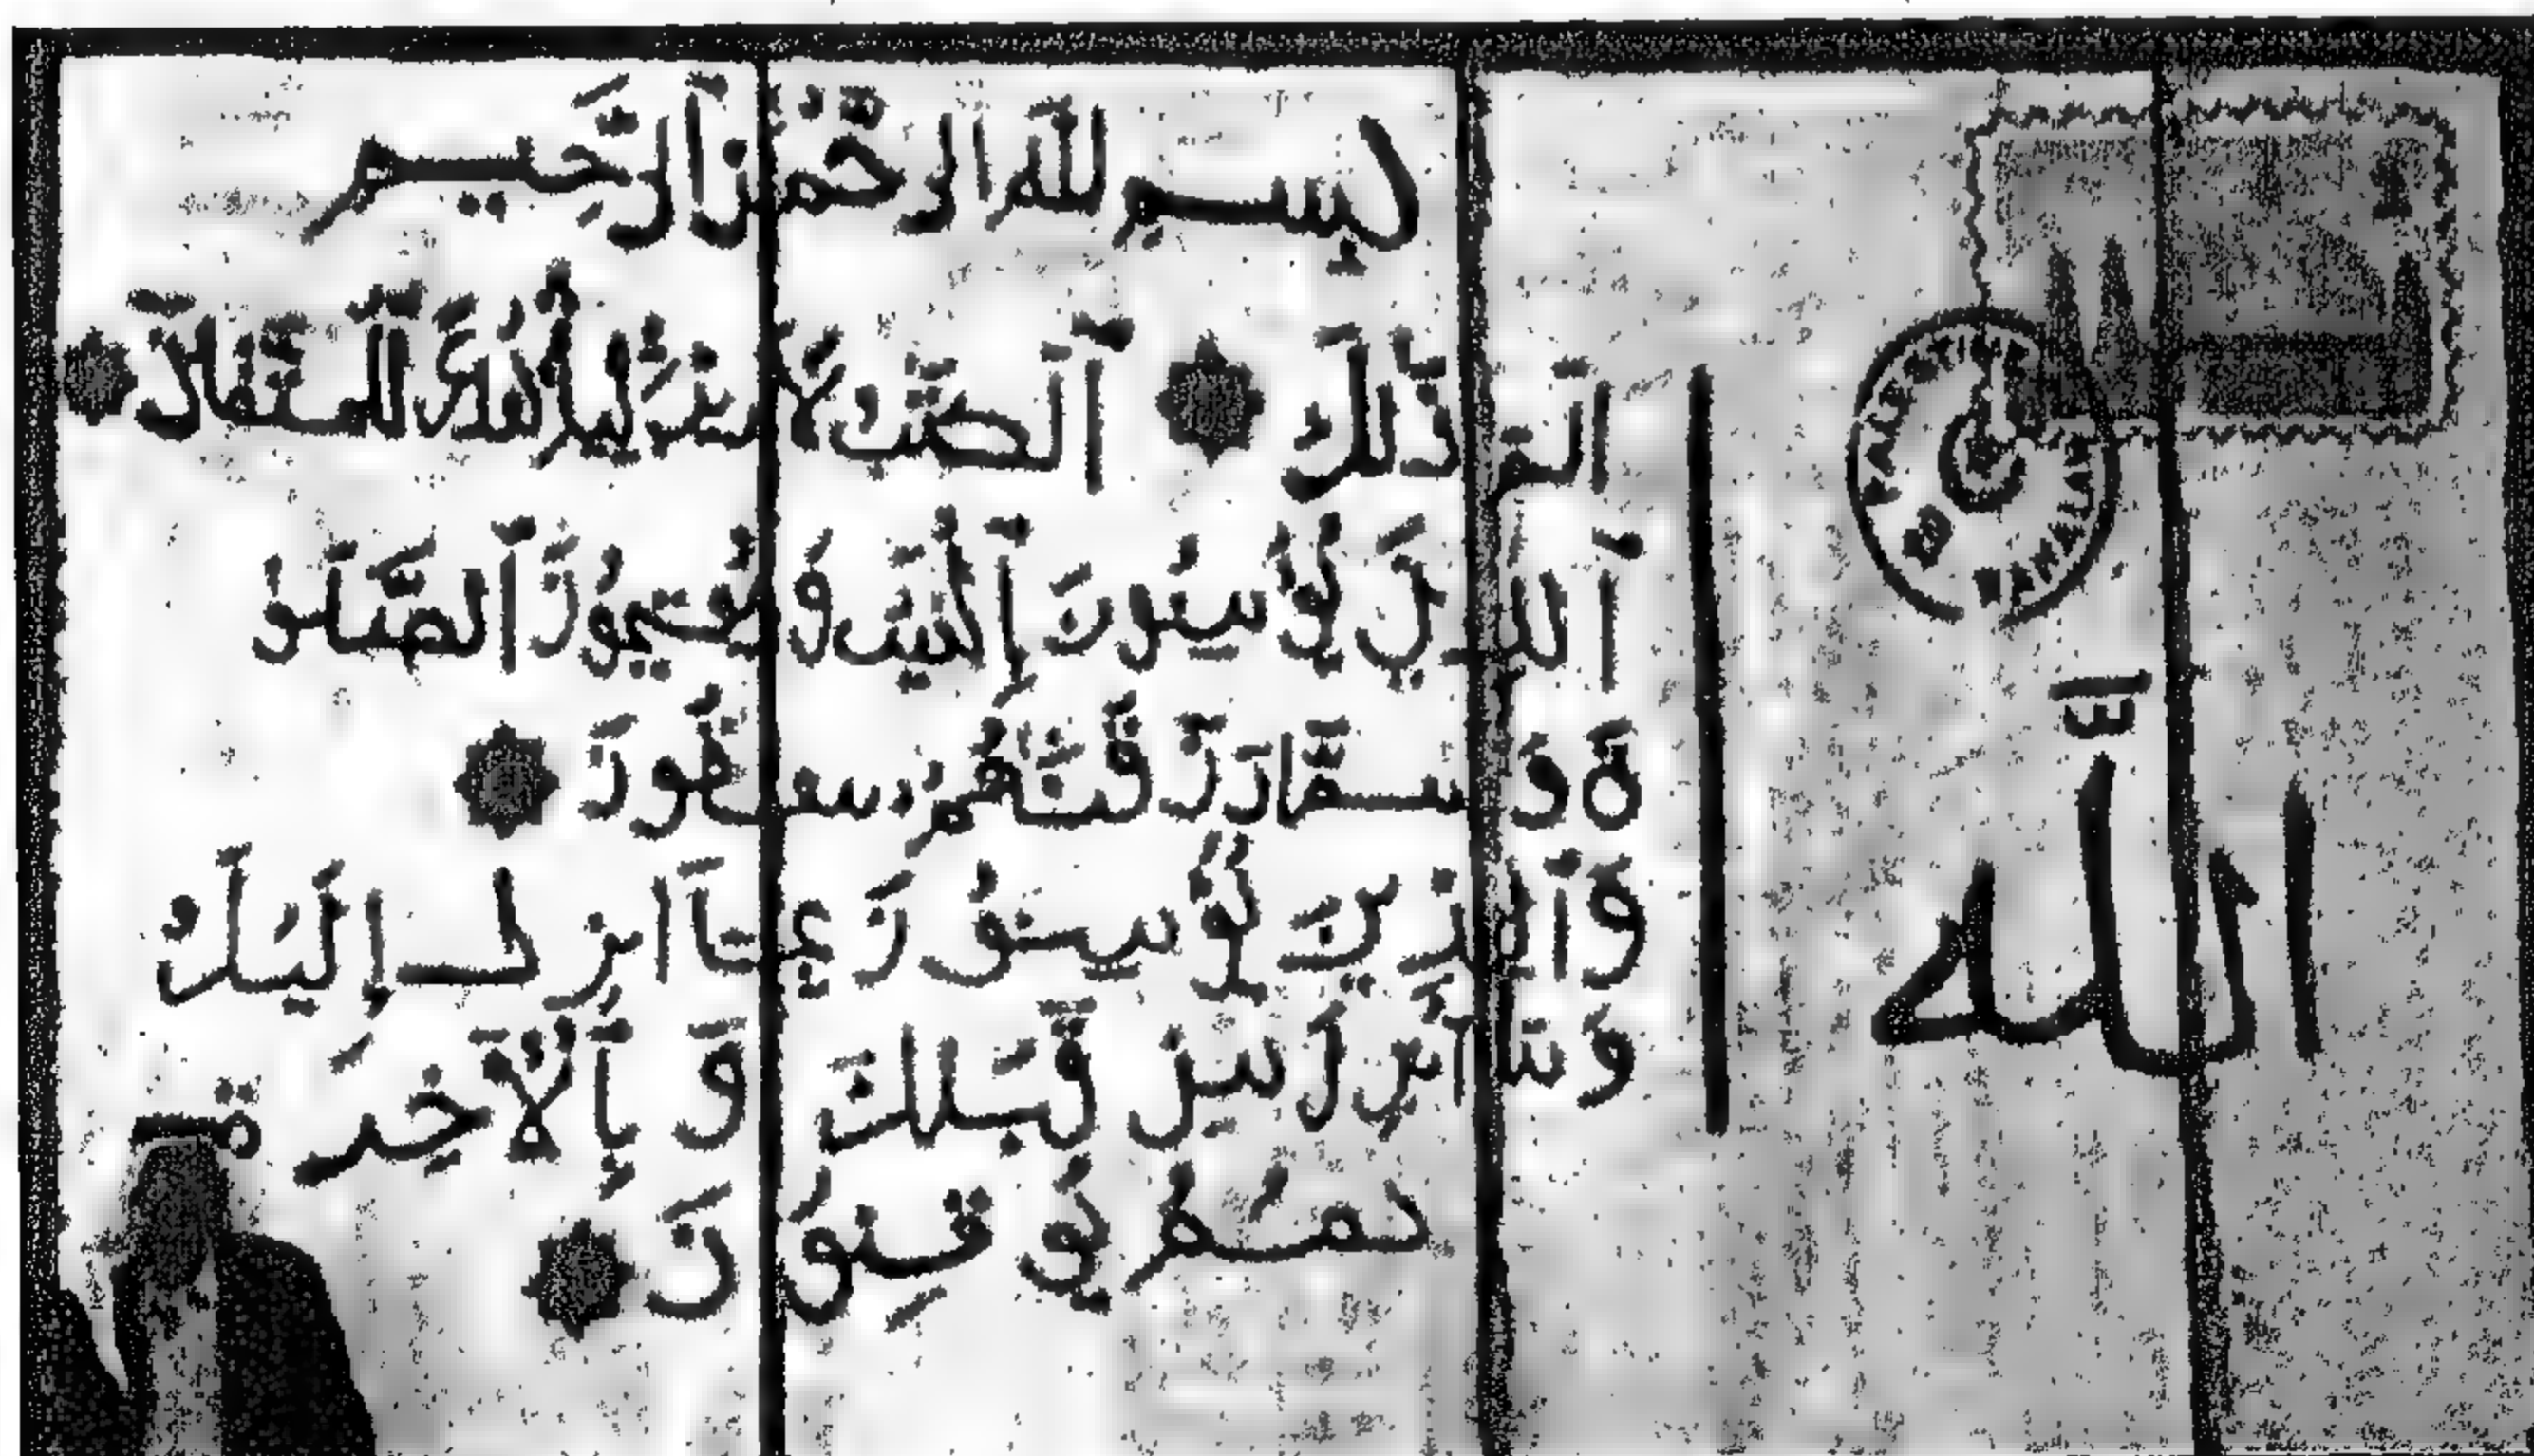 بسم الله الرحمن الرحيم
الم ذلك الكتب لا ريب فيه هدى للمتقين
الذين يؤمنون بالغيب ويقيمون الصلو
ة و مما رزقنهم ينفقون
والذين يؤمنون بما انزل إليك
وما انزل من قبلك و بالآخرة
هم يوقنون
1
الله